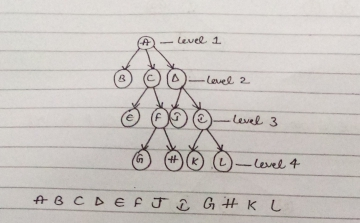 A — Level 1
B C D — Level 2
E F J I — Level 3
G H K L — Level 4
A B C D E F J I G H K L